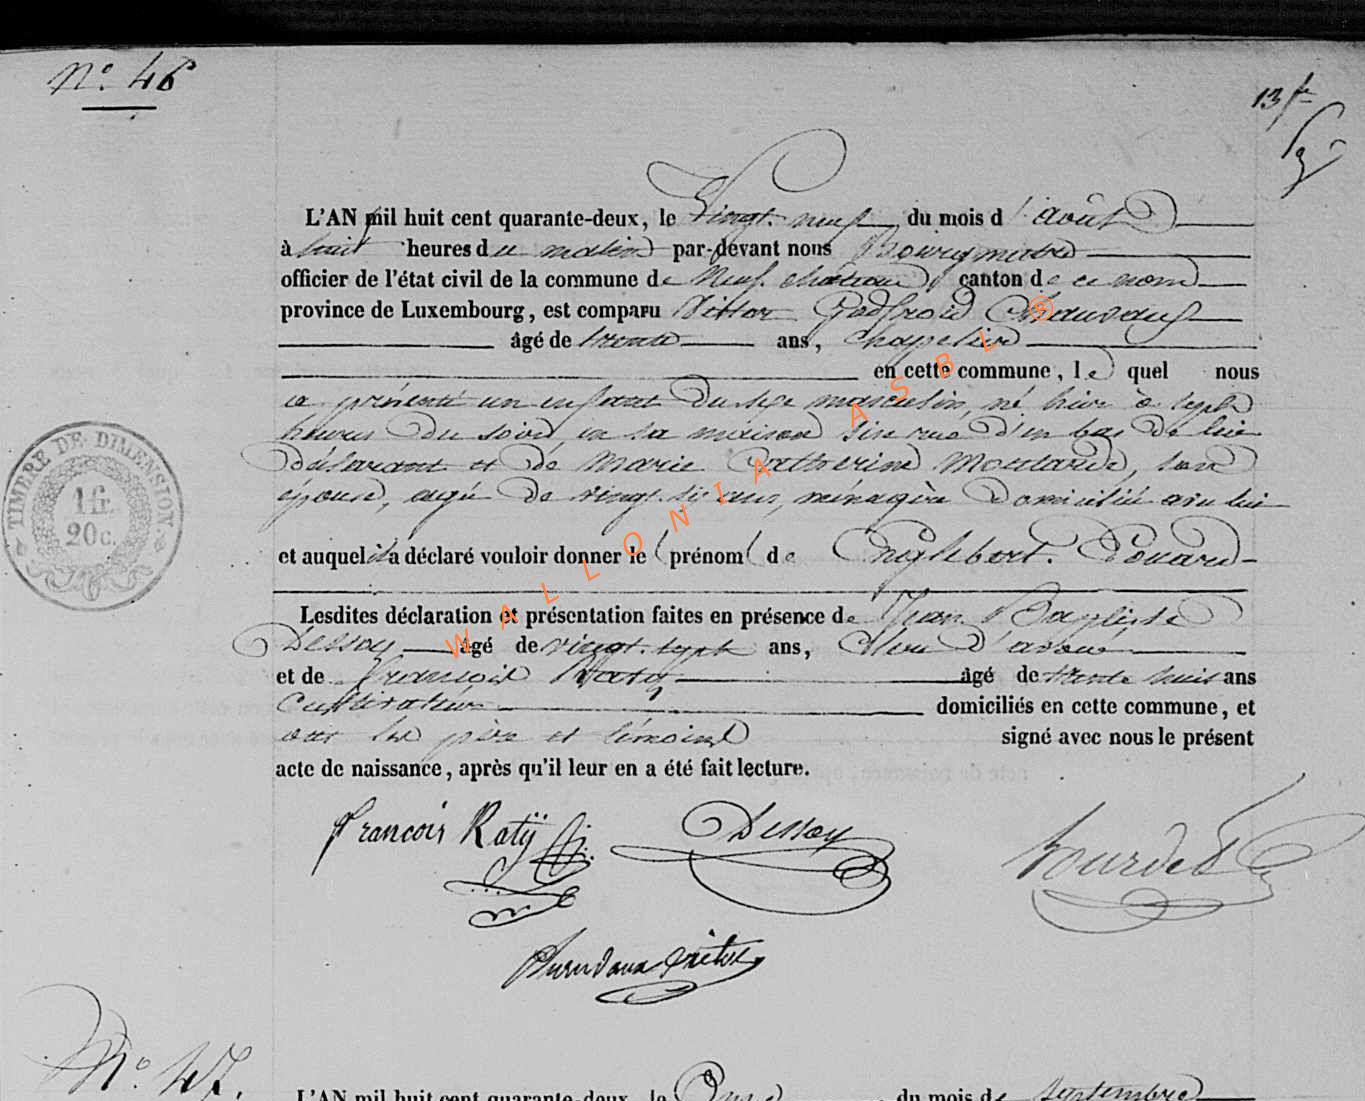 N° 46
13 fr
L'AN mil huit cent quarante-deux, le Vingt neuf du mois d'août
à huit heures du matin par-devant nous
officier de l'état civil de la commune de Neufchateau, canton de ce nom
province de Luxembourg, est comparu Victor Godfroid
âgé de trente ans, Chapelier
en cette commune, lequel nous
a présenté un enfant du sexe masculin, né hier à sept
heures du soir, en sa maison sise rue d'en bas de lui
déclarant et de Marie Catherine, son
épouse, agée de vingt six ans, ménagère domiciliée avec lui
et auquel il a déclaré vouloir donner le prénom de Englebert. Edouard
Lesdites déclaration et présentation faites en présence de Jean Baptiste
Dessoy âgé de vingt-sept ans, Clerc d'avoué
et de François Raty âgé de trente huit ans
Cultivateur domiciliés en cette commune, et
ont les père et témoins signé avec nous le présent
acte de naissance, après qu'il leur en a été fait lecture.
TIMBRE DE DIMENSION
1 fr.
20 c.
WALLONIA ASBL ®
François Raty
Dessoy
N° 47.
L'AN mil huit cent quarante-deux, le Onze du mois de Septembre